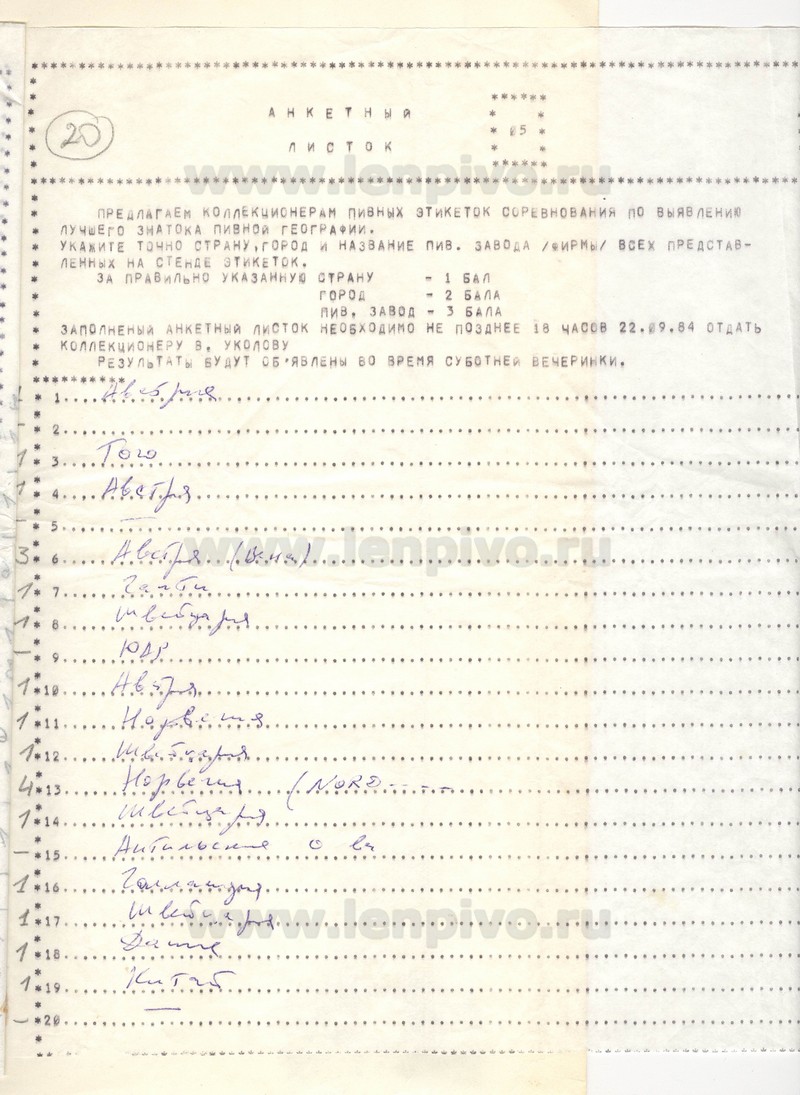 АНКЕТНЫЙ
20
05
ЛИСТОК
www.lenpivo.ru
ПРЕДЛАГАЕМ КОЛЛЕКЦИОНЕРАМ ПИВНЫХ ЭТИКЕТОК СОРЕВНОВАНИЯ ПО ВЫЯВЛЕНИЮ
ЛУЧШЕГО ЗНАТОКА ПИВНОЙ ГЕОГРАФИИ.
УКАЖИТЕ ТОЧНО СТРАНУ,ГОРОД И НАЗВАНИЕ ПИВ. ЗАВОДА /ФИРМЫ/ ВСЕХ ПРЕДСТАВ-
ЛЕННЫХ НА СТЕНДЕ ЭТИКЕТОК.
ЗА ПРАВИЛЬНО УКАЗАННУЮ СТРАНУ - 1 БАЛ
ГОРОД - 2 БАЛА
ПИВ, ЗАВОД - 3 БАЛА
ЗАПОЛНЕНЫЙ АНКЕТНЫЙ ЛИСТОК НЕОБХОДИМО НЕ ПОЗДНЕЕ 18 ЧАСОВ 22.09.84 ОТДАТЬ
КОЛЛЕКЦИОНЕРУ В, УКОЛОВУ
РЕЗУЛЬТАТЫ БУДУТ ОБ'ЯВЛЕНЫ ВО ВРЕМЯ СУБОТНЕЙ ВЕЧЕРИНКИ.
1 Австрия
- 2
1 3 Того
1 4 Австрия
- 5 —
www.lenpivo.ru
3 6 Австря (Вена)
1 7 Гаити
1 8 Швейцария
- 9 ЮАР
1 10 Австрия
1 11 Норвегия
1 12 Швейцария
4 13 Норвегия (NORD ----
1 14 Швейцария
- 15 Антильские о ва
1 16 Галландия
1 17 Швейцария
www.lenpivo.ru
1 18 Дания
1 19 Китай
- 20 —